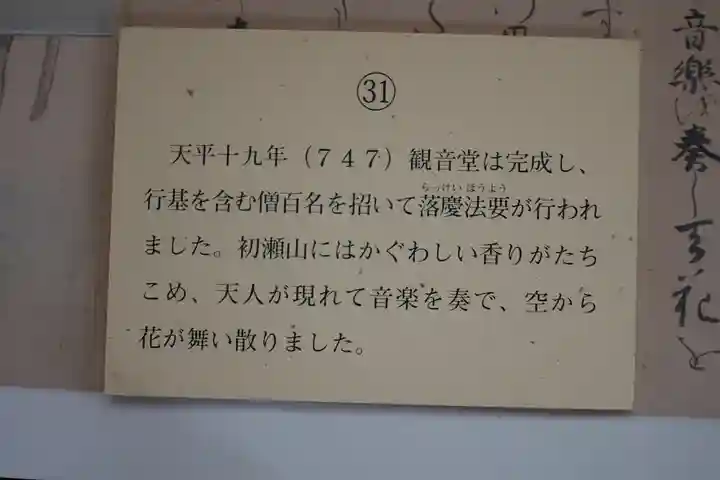 ㉛
天平十九年（７４７）観音堂は完成し、
行基を含む僧百名を招いて落慶法要が行われ
らっけい ほうよう
ました。初瀬山にはかぐわしい香りがたち
こめ、天人が現れて音楽を奏で、空から
花が舞い散りました。
音樂は奏し天花を